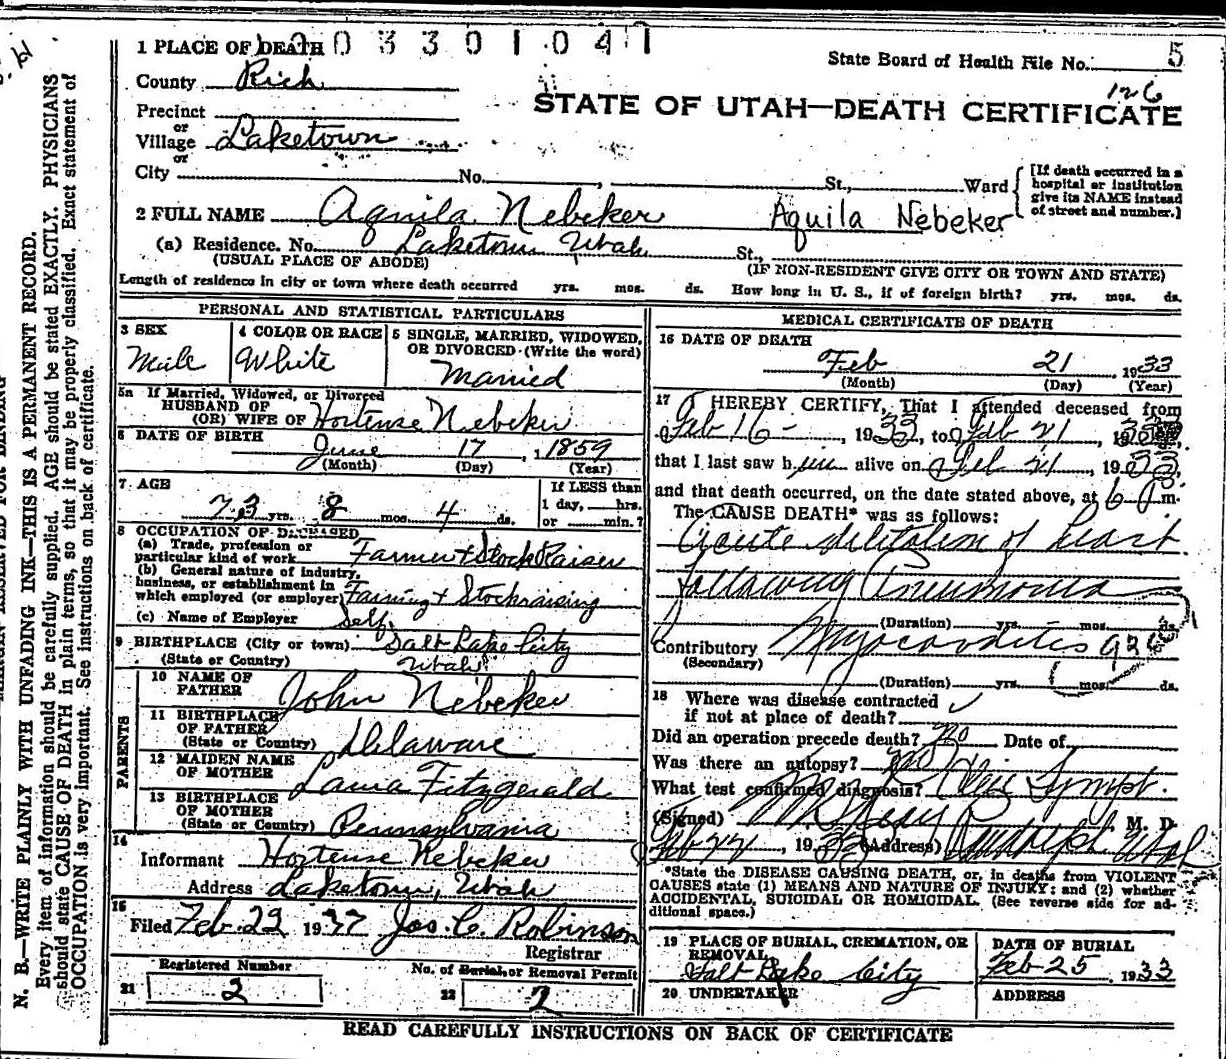 1 PLACE OF DEATH 0 3 3 0 1 0 4
State Board of Health File No. 5
126
County Rich
STATE OF UTAH—DEATH CERTIFICATE
Precinct
or
Village Laketown
or
City No. , St., Ward
[If death occurred in a
hospital or institution
give its NAME instead
of street and number.]
2 FULL NAME Aquila Nebeker Aquila Nebeker
(a) Residence. No. Laketown Utah St.,
(USUAL PLACE OF ABODE) (IF NON-RESIDENT GIVE CITY OR TOWN AND STATE)
Length of residence in city or town where death occurred yrs. mos. ds. How long in U. S., if of foreign birth? yrs. mos. ds.
PERSONAL AND STATISTICAL PARTICULARS
3 SEX 4 COLOR OR RACE 5 SINGLE, MARRIED, WIDOWED,
OR DIVORCED (Write the word)
Male White Married
5a If Married, Widowed, or Divorced
HUSBAND OF
(OR) WIFE OF Hortense Nebeker
6 DATE OF BIRTH
June 17, 1859
(Month) (Day) (Year)
7 AGE If LESS than
1 day, hrs.
73 yrs. 8 mos. 4 ds. or min.?
8 OCCUPATION OF DECEASED
(a) Trade, profession or
particular kind of work Farmer & Stock Raiser
(b) General nature of industry,
business, or establishment in
which employed (or employer) Farming & Stockraising
(c) Name of Employer Self
9 BIRTHPLACE (City or town) Salt Lake City
(State or Country) Utah
PARENTS
10 NAME OF
FATHER John Nebeker
11 BIRTHPLACE
OF FATHER
(State or Country) Delaware
12 MAIDEN NAME
OF MOTHER Laura Fitzgerald
13 BIRTHPLACE
OF MOTHER
(State or Country) Pennsylvania
14
Informant Hortense Nebeker
Address Laketown, Utah
15
Filed Feb. 22 1937 Jos. C. Robinson
Registrar
Registered Number No. of Burial, or Removal Permit
21 2 22 2
MEDICAL CERTIFICATE OF DEATH
16 DATE OF DEATH
Feb 21, 1933
(Month) (Day) (Year)
17 I HEREBY CERTIFY, That I attended deceased from
Feb 16 -, 1933, to Feb 21, 1933
that I last saw him alive on Feb 21, 1933,
and that death occurred, on the date stated above, at 6 m.
The CAUSE DEATH* was as follows:
Acute dilitation of heart
following Pneumonia
(Duration) yrs. mos. ds.
Contributory Myocarditis
(Secondary)
(Duration) yrs. mos. ds.
18 Where was disease contracted
if not at place of death?
Did an operation precede death? No Date of
Was there an autopsy? no
What test confirmed diagnosis? Sympt.
(Signed) M. D.
Feb 22, 1933 (Address) Randolph Utah
*State the DISEASE CAUSING DEATH, or, in deaths from VIOLENT
CAUSES state (1) MEANS AND NATURE OF INJURY; and (2) whether
ACCIDENTAL, SUICIDAL OR HOMICIDAL. (See reverse side for ad-
ditional space.)
19 PLACE OF BURIAL, CREMATION, OR
REMOVAL
Salt Lake City
DATE OF BURIAL
Feb 25, 1933
20 UNDERTAKER ADDRESS
READ CAREFULLY INSTRUCTIONS ON BACK OF CERTIFICATE
N. B.—WRITE PLAINLY WITH UNFADING INK—THIS IS A PERMANENT RECORD.
Every item of information should be carefully supplied. AGE should be stated EXACTLY. PHYSICIANS
should state CAUSE OF DEATH in plain terms, so that it may be properly classified. Exact statement of
OCCUPATION is very important. See instructions on back of certificate.